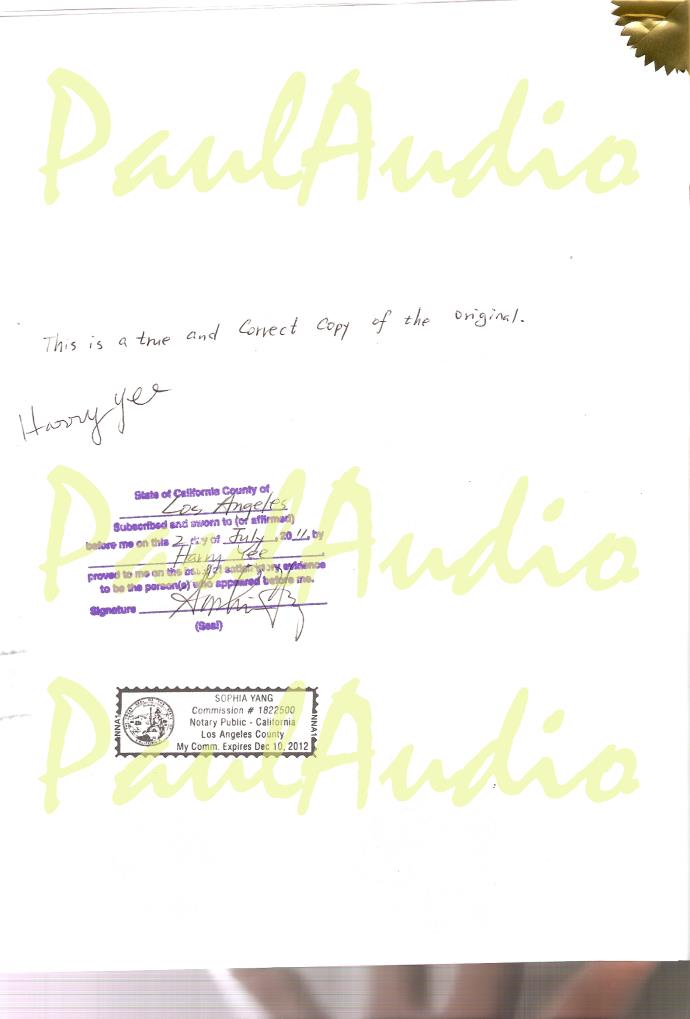 PaulAudio
This is a true and Correct Copy of the original.
Harry Yee
PaulAudio
State of California County of
Los Angeles
Subscribed and sworn to (or affirmed)
before me on this 2 day of July, 2011, by
Harry Yee
proved to me on the basis of satisfactory evidence
to be the person(s) who appeared before me.
Signature
(Seal)
PaulAudio
SOPHIA YANG
Commission # 1822500
Notary Public - California
Los Angeles County
My Comm. Expires Dec 10, 2012